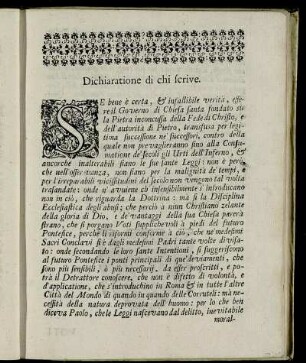 Dichiaratione di chi scrive.
SE bene è certa, & infallibile verità, esse-
re il Governo di Chiesa santa fondato su
la Pietra inconcussa della Fede di Christo, e
dell'autorità di Pietro, transfusa per legi-
tima successione ne' successori, contro della
quale non prevaglieranno sino alla Consu-
matione de' secoli gli Urti dell'Inferno, &
ancorche inalterabili siano le sante Leggi: non è però,
che nell'osservanza, non siano per la malignità de' tempi, e
per l'irreparabili vicissitudini del secolo non vengano tal volta
trasandate; onde n'avviene ch'insensibilmente s'introducano
non in ciò, che riguarda la Dottrina: mà sì la Disciplina
Ecclesiastica degli abusi; che perciò a niun Christiano zelante
della gloria di Dio, e de' vantaggi della sua Chiesa parerà
strano, che si porgano Voti supplichevoli à piedi del futuro
Pontefice, perche li riformi conforme à ciò, che ne' medesimi
Sacri Conclavi si è dagli medesimi Padri tante volte divisa-
to: onde secondando le loro sante Intentioni, si suggeriscono
al futuro Pontefice i ponti principali di que' deviamenti, che
sono più sensibili, e più necessarij, da esser proscritti, e po-
trà il Detrattore conoscere, che non è difetto di volontà, e
d'applicatione, che s'introduchino in Roma & in tutte l'altre
Città del Mondo di quando in quando delle Corruttele: mà ne-
cessità della natura depravata dell'huomo: per lo che ben
diceva Paolo, che le Leggi nascevano dal delitto, inevitabile
moral-